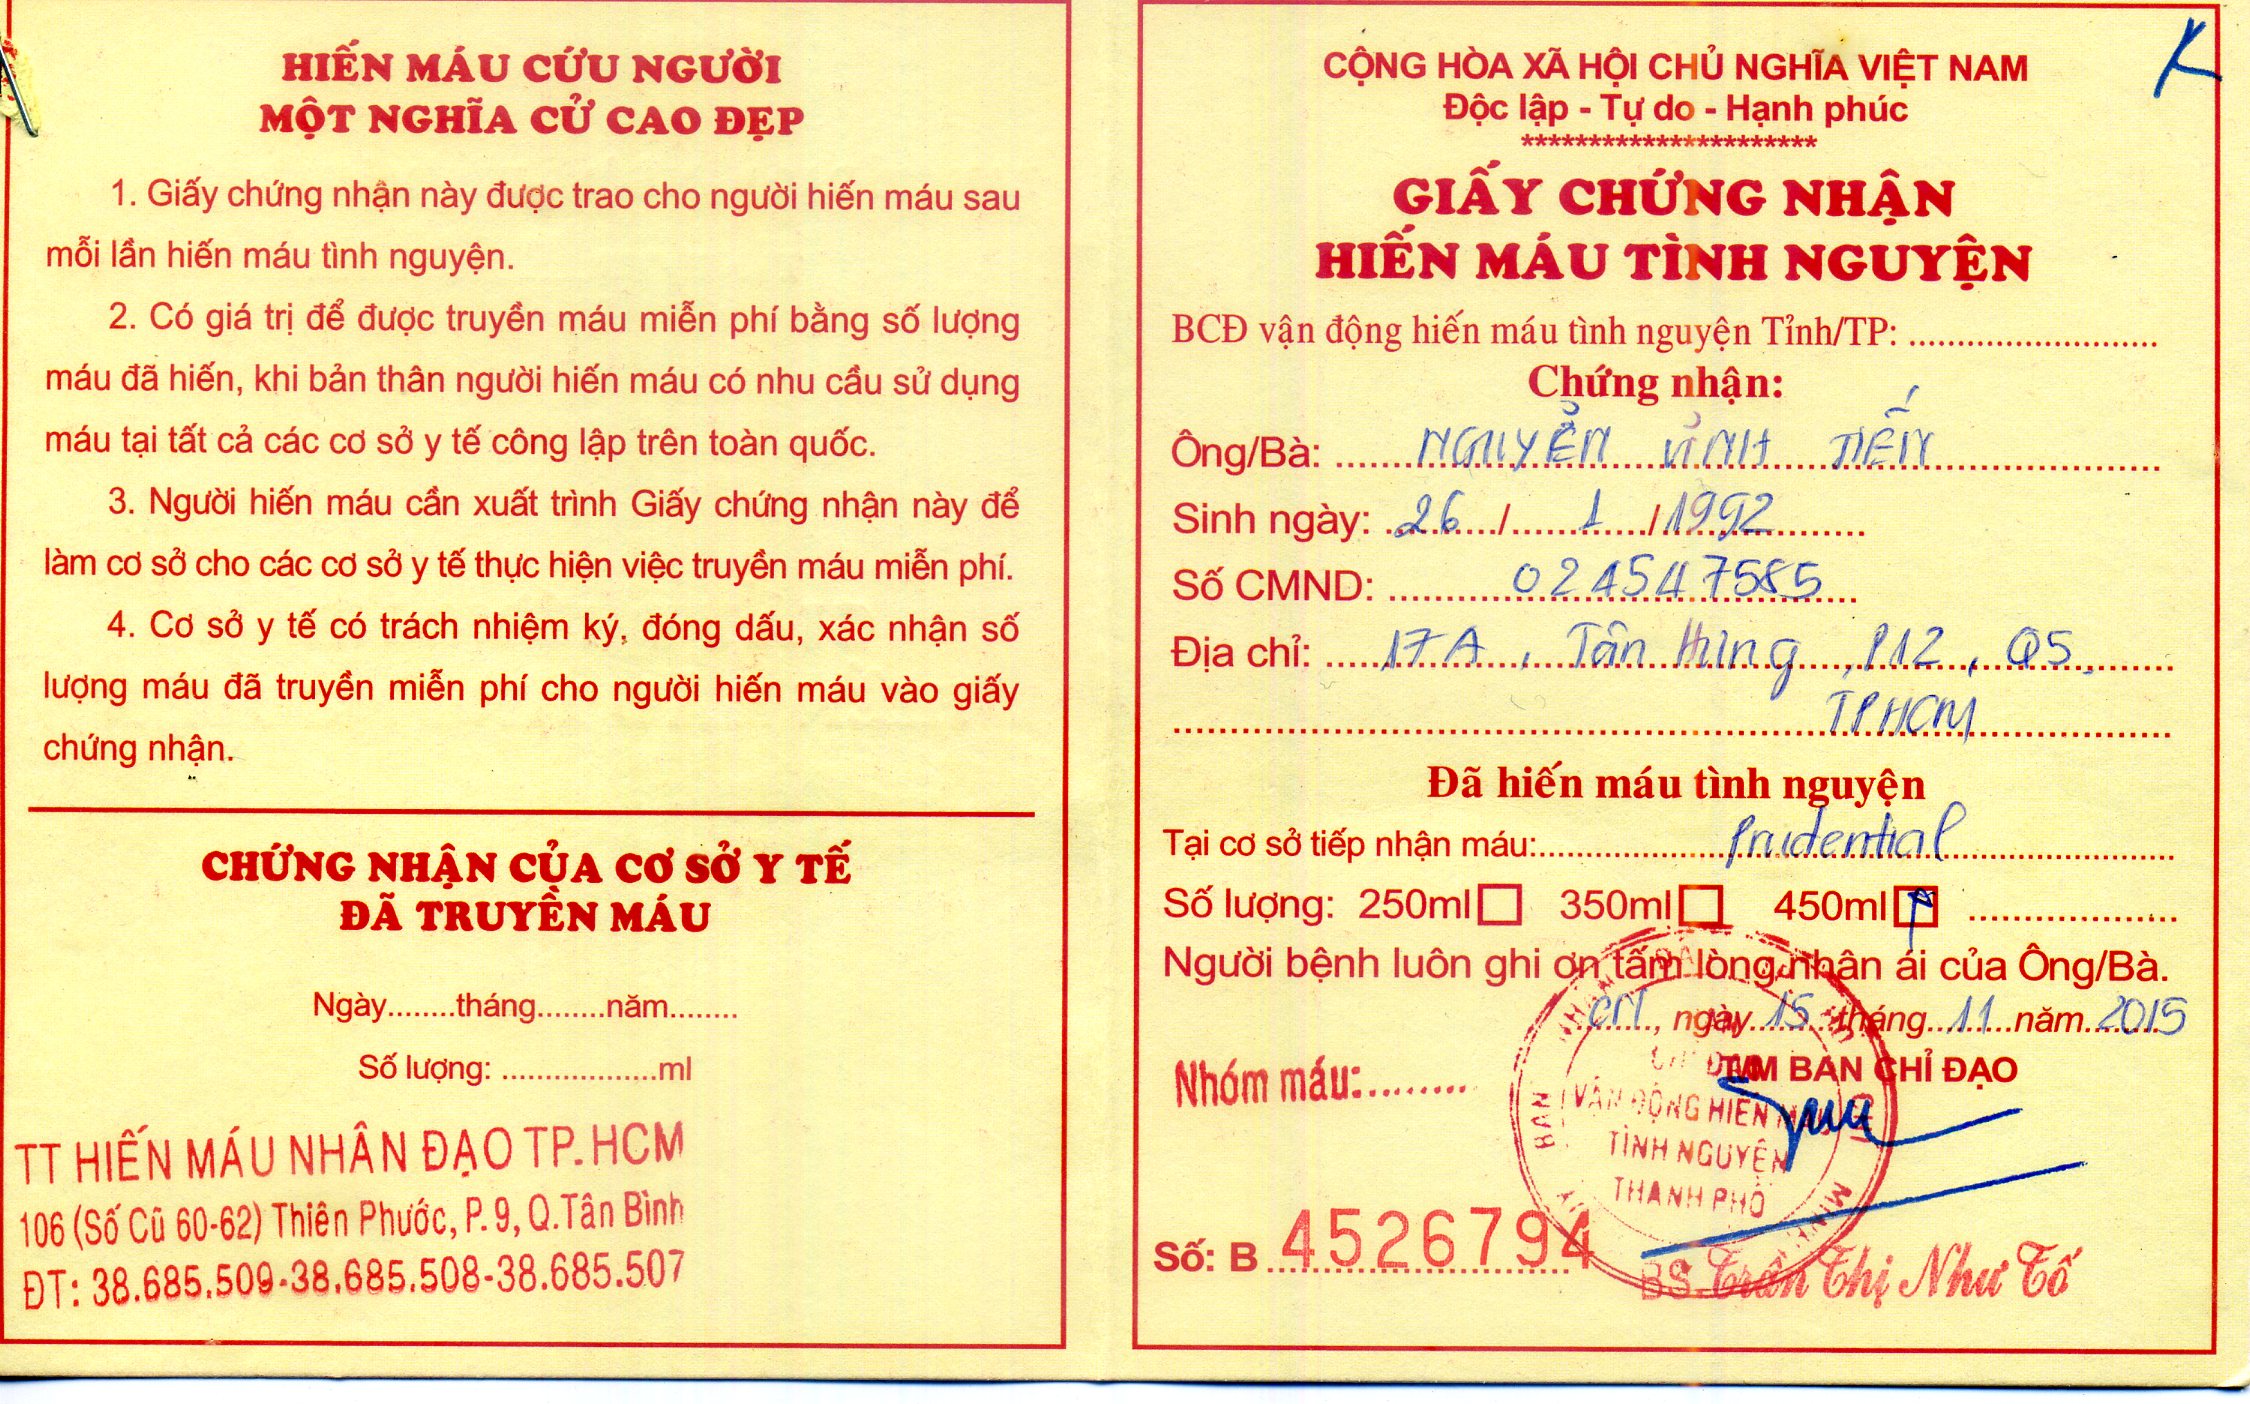 HIẾN MÁU CỨU NGƯỜI
MỘT NGHĨA CỬ CAO ĐẸP
1. Giấy chứng nhận này được trao cho người hiến máu sau
mỗi lần hiến máu tình nguyện.
2. Có giá trị để được truyền máu miễn phí bằng số lượng
máu đã hiến, khi bản thân người hiến máu có nhu cầu sử dụng
máu tại tất cả các cơ sở y tế công lập trên toàn quốc.
3. Người hiến máu cần xuất trình Giấy chứng nhận này để
làm cơ sở cho các cơ sở y tế thực hiện việc truyền máu miễn phí.
4. Cơ sở y tế có trách nhiệm ký, đóng dấu, xác nhận số
lượng máu đã truyền miễn phí cho người hiến máu vào giấy
chứng nhận.
CHỨNG NHẬN CỦA CƠ SỞ Y TẾ
ĐÃ TRUYỀN MÁU
Ngày........tháng........năm........
Số lượng: ..................ml
TT HIẾN MÁU NHÂN ĐẠO TP.HCM
106 (Số Cũ 60-62) Thiên Phước, P.9, Q.Tân Bình
ĐT: 38.685.509-38.685.508-38.685.507
K
CỘNG HÒA XÃ HỘI CHỦ NGHĨA VIỆT NAM
Độc lập - Tự do - Hạnh phúc
**********************
GIẤY CHỨNG NHẬN
HIẾN MÁU TÌNH NGUYỆN
BCĐ vận động hiến máu tình nguyện Tỉnh/TP: ..........................
Chứng nhận:
Ông/Bà: NGUYỂN VĨNH TIẾN
Sinh ngày: 26 / 1 / 1992
Số CMND: 024547585
Địa chỉ: 17A, Tân Hưng, P12, Q5,
TPHCM
Đã hiến máu tình nguyện
Tại cơ sở tiếp nhận máu: Prudential
Số lượng: 250ml 350ml 450ml ....................
Người bệnh luôn ghi ơn tấm lòng nhân ái của Ông/Bà.
CN, ngày 15 tháng 11 năm 2015
TM BAN CHỈ ĐẠO
Nhóm máu:.........
VẬN ĐỘNG HIẾN MÁU
TÌNH NGUYỆN
THÀNH PHỐ
Số: B 4526794
BS. Trần Thị Như Tố